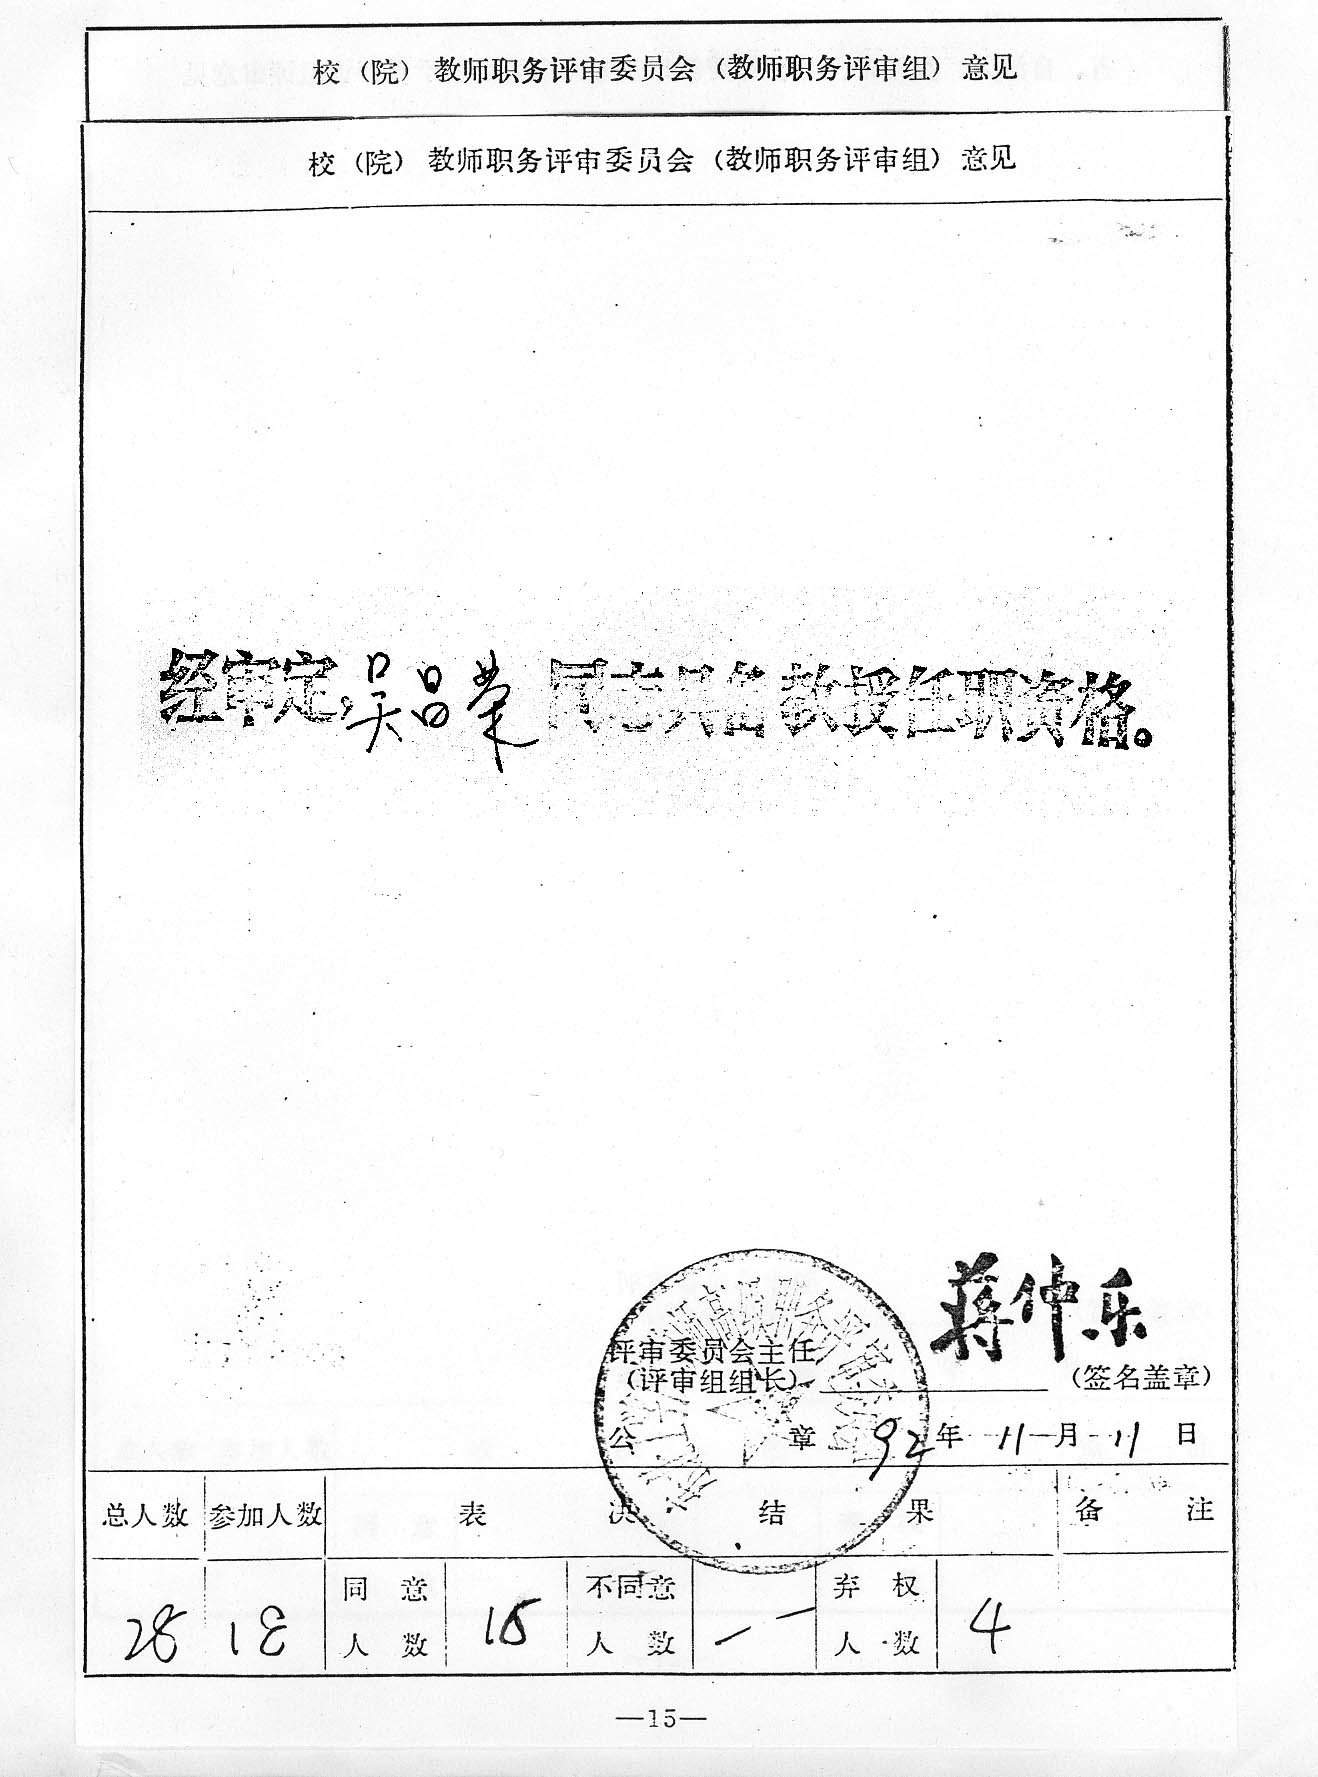 校（院）教师职务评审委员会（教师职务评审组）意见
校（院）教师职务评审委员会（教师职务评审组）意见
经审定，吴昌荣 同志具备教授任职资格。
蒋仲乐
评审委员会主任
（评审组组长） （签名盖章）
公 章 92年 11月 11日
总人数 参加人数 表 决 结 果 备 注
28 18 同意人数 不同意人数 — 弃权人数 4
—15—